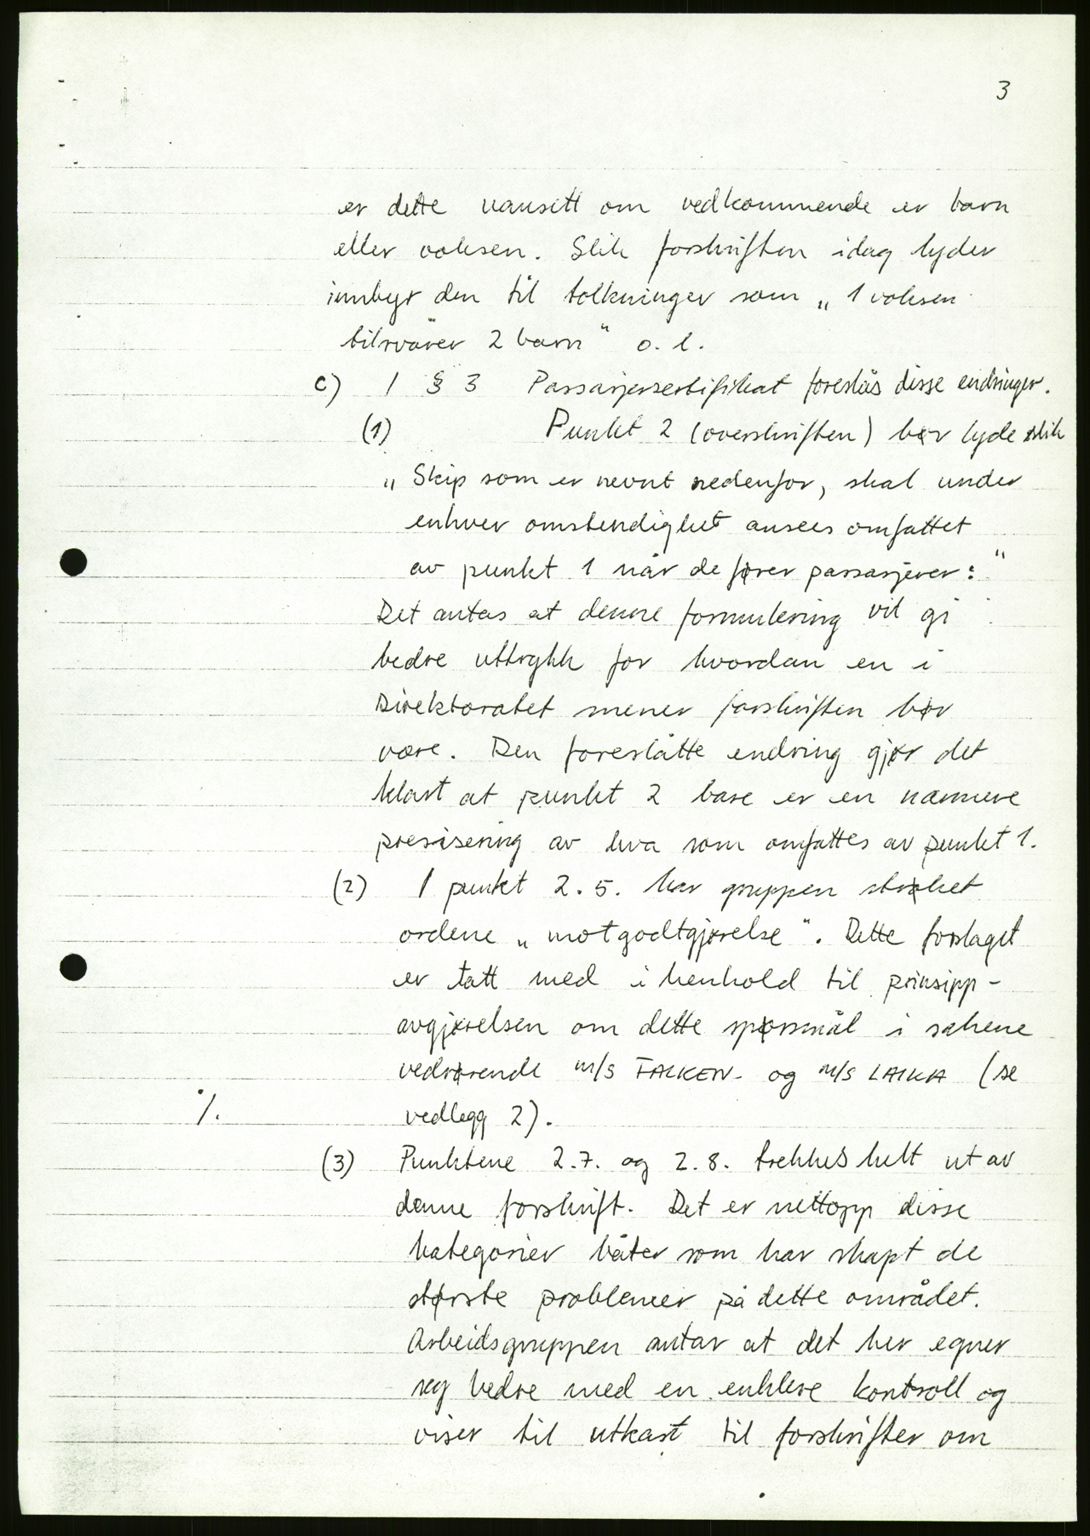 3
er dette uansett om vedkommende er barn
eller voksen. Slik forskriften idag lyder
innbyr den til tolkninger som „1 voksen
tilsvarer 2 barn“ o.l.
c) I § 3 Passasjersertifikat foreslås disse endringer.
(1) Punkt 2 (overskriften) bør lyde slik
„Skip som er nevnt nedenfor, skal under
enhver omstendighet ansees omfattet
av punkt 1 når de fører passasjerer:“
Det antas at denne formulering vil gi
bedre uttrykk for hvordan en i
Direktoratet mener forskriften bør
være. Den foreslåtte endring gjør det
klart at punkt 2 bare er en nærmere
presisering av hva som omfattes av punkt 1.
(2) I punkt 2.5. har gruppen strøket
ordene „mot godtgjørelse“. Dette forslaget
er tatt med i henhold til prinsipp-
avgjørelsen om dette spørsmål i sakene
vedrørende M/S FALKEN og M/S LAIKA (se
./. vedlegg 2).
(3) Punktene 2.7. og 2.8. trekkes helt ut av
denne forskrift. Det er nettopp disse
kategorier båter som har skapt de
største problemer på dette området.
Arbeidsgruppen antar at det her egner
seg bedre med en enklere kontroll og
viser til utkast til forskrifter om